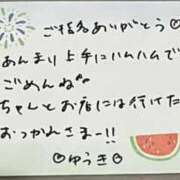 ご指名ありがとう☺
あんまり上手にハムハムで
ごめんね
ちゃんとお店には行けた
おっかれさまー!!
☺ゆうき☺